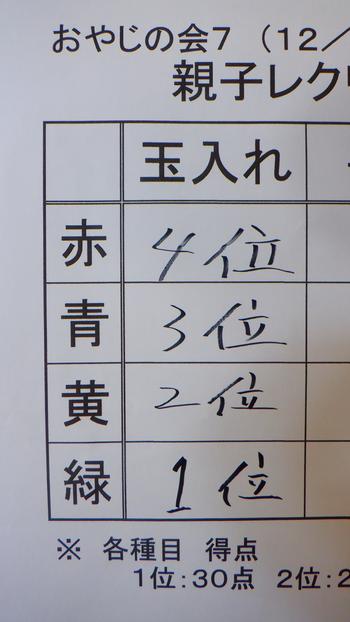 おやじの会７（１２／
親子レク
玉入れ
赤 4位
青 3位
黄 2位
緑 1位
※ 各種目 得点
１位：３０点 ２位：２